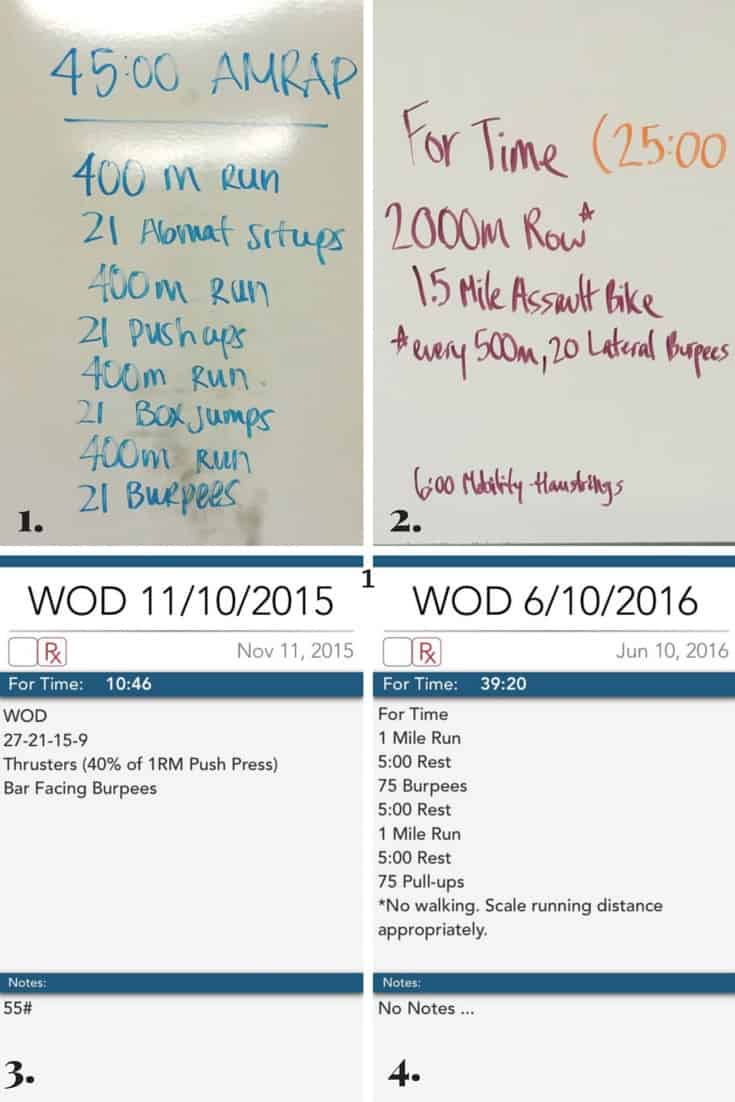 45:00 AMRAP
400 m Run
21 Abmat Situps
400m Run
21 Pushups
400m Run
21 Box Jumps
400m Run
21 Burpees
1.
For Time (25:00
2000m Row*
1.5 Mile Assault Bike
*every 500m, 20 Lateral Burpees
6:00 Mobility Hamstrings
2.
1
WOD 11/10/2015
Rx
Nov 11, 2015
For Time: 10:46
WOD
27-21-15-9
Thrusters (40% of 1RM Push Press)
Bar Facing Burpees
Notes:
55#
3.
WOD 6/10/2016
Rx
Jun 10, 2016
For Time: 39:20
For Time
1 Mile Run
5:00 Rest
75 Burpees
5:00 Rest
1 Mile Run
5:00 Rest
75 Pull-ups
*No walking. Scale running distance
appropriately.
Notes:
No Notes ...
4.